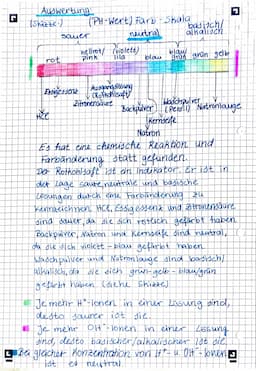 Auswertung
(Skizze:) (PH-Wert) Farb-Skala
sauer neutral basisch/
alkalisch
rot hellrot/
pink (violett)
lila blau blau/
grün grün gelb
Essigessenz Ausgangslösung
(Rotkohlsaft)
Zitronensäure Backpulver Waschpulver
(Persil) Natronlauge
HCL Kernseife
Natron
Es hat eine chemische Reaktion und
Farbänderung statt gefunden.
Der Rotkohlsaft ist ein Indikator. Er ist in
der Lage saure, neutrale und basische
Lösungen durch eine Farbänderung zu
kennzeichnen. HCL, Essigessenz und Zitronensäure
sind sauer, da sie sich rötlich gefärbt haben.
Backpulver, Natron und Kernseife sind neutral,
da sie sich violett-blau gefärbt haben.
Waschpulver und Natronlauge sind basisch/
alkalisch, da sie sich grün-gelb-blau/grün
gefärbt haben (siehe Skizze)
Je mehr H⁺-Ionen in einer Lösung sind,
desto saurer ist die.
Je mehr OH⁻-Ionen in einer Lösung
sind, desto basischer/alkalischer ist die.
Bei gleicher Konzentration von H⁺- u. OH⁻-Ionen
ist es neutral